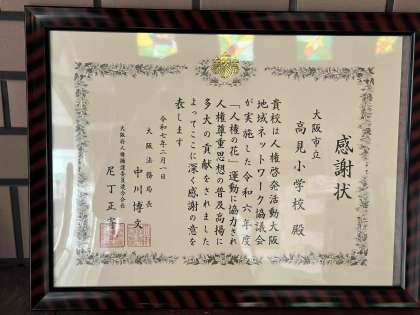 感謝状
大阪市立
高見小学校 殿
貴校は人権啓発活動大阪
地域ネットワーク協議会
が実施した令和六年度
「人権の花」運動に協力され
人権尊重思想の普及高揚に
多大の貢献をされました
よってここに深く感謝の意を
表します
令和七年二月一日
大阪法務局長
中川博文
大阪府人権擁護委員連合会会長
尼丁正寄